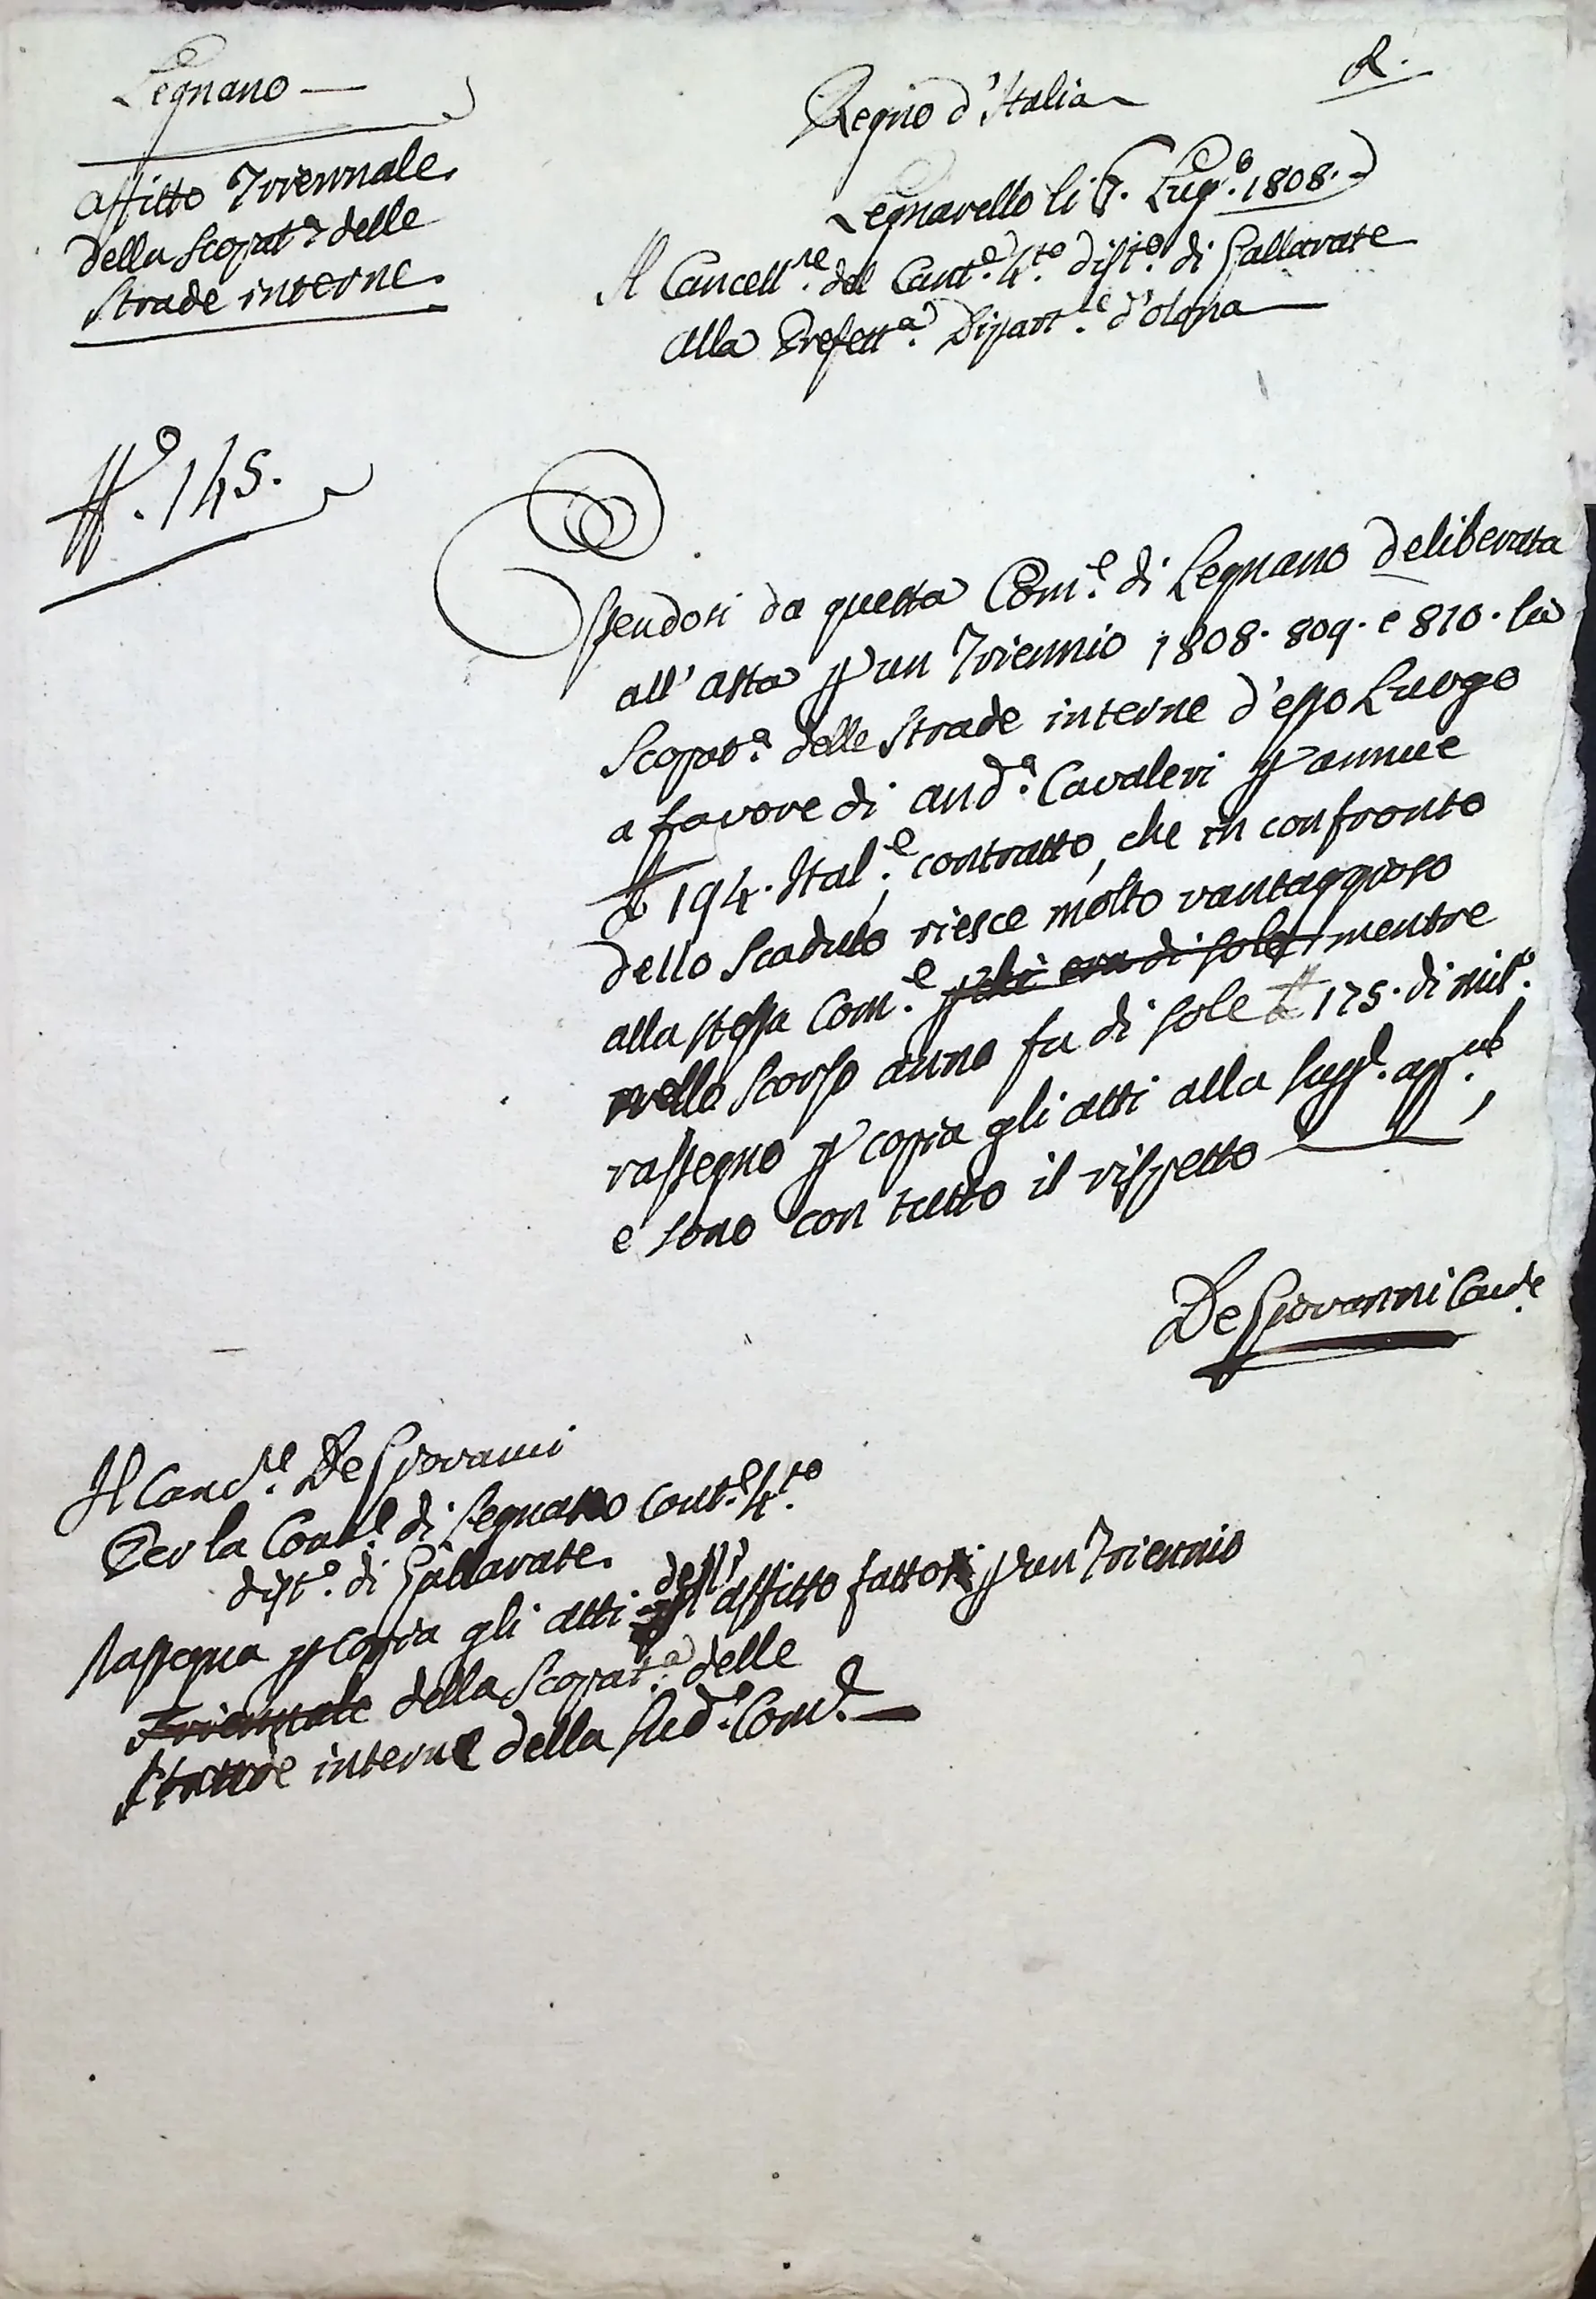 Legnano —
Affitto Triennale
della Scopat.ª delle
Strade interne
N.º 145.
R.
Regno d'Italia
Legnarello li 6. Lug.º 1808.
Il Cancell.re del Cant.e 4.to Dist.o di Gallarate
Alla Prefett.a Dipart.le d'Olona
Essendosi da questa Com.e di Legnano deliberata
all'asta p un Triennio 1808. 809. e 810. la
Scopat.a delle Strade interne d'esso Luogo
a favore di And.a Cavaleri p annue
£ 194. Ital.e; contratto, che in confronto
dello scaduto riesce molto vantaggioso
alla stessa Com.e era di sole mentre
nello scorso anno fu di sole £ 175. di mil.o,
rassegno p copia gli atti alla sup.e app.ne,
e sono con tutto il rispetto
De Giovanni Canc.e
Il Canc.re De Giovanni
Per la Com.e di Legnano Cant.e 4.to
Dist.o di Gallarate
Rassegna p copia gli atti dell'affitto fattosi p un Triennio
Triennale della Scopat.a delle
Strade interne della sud.a Com.e